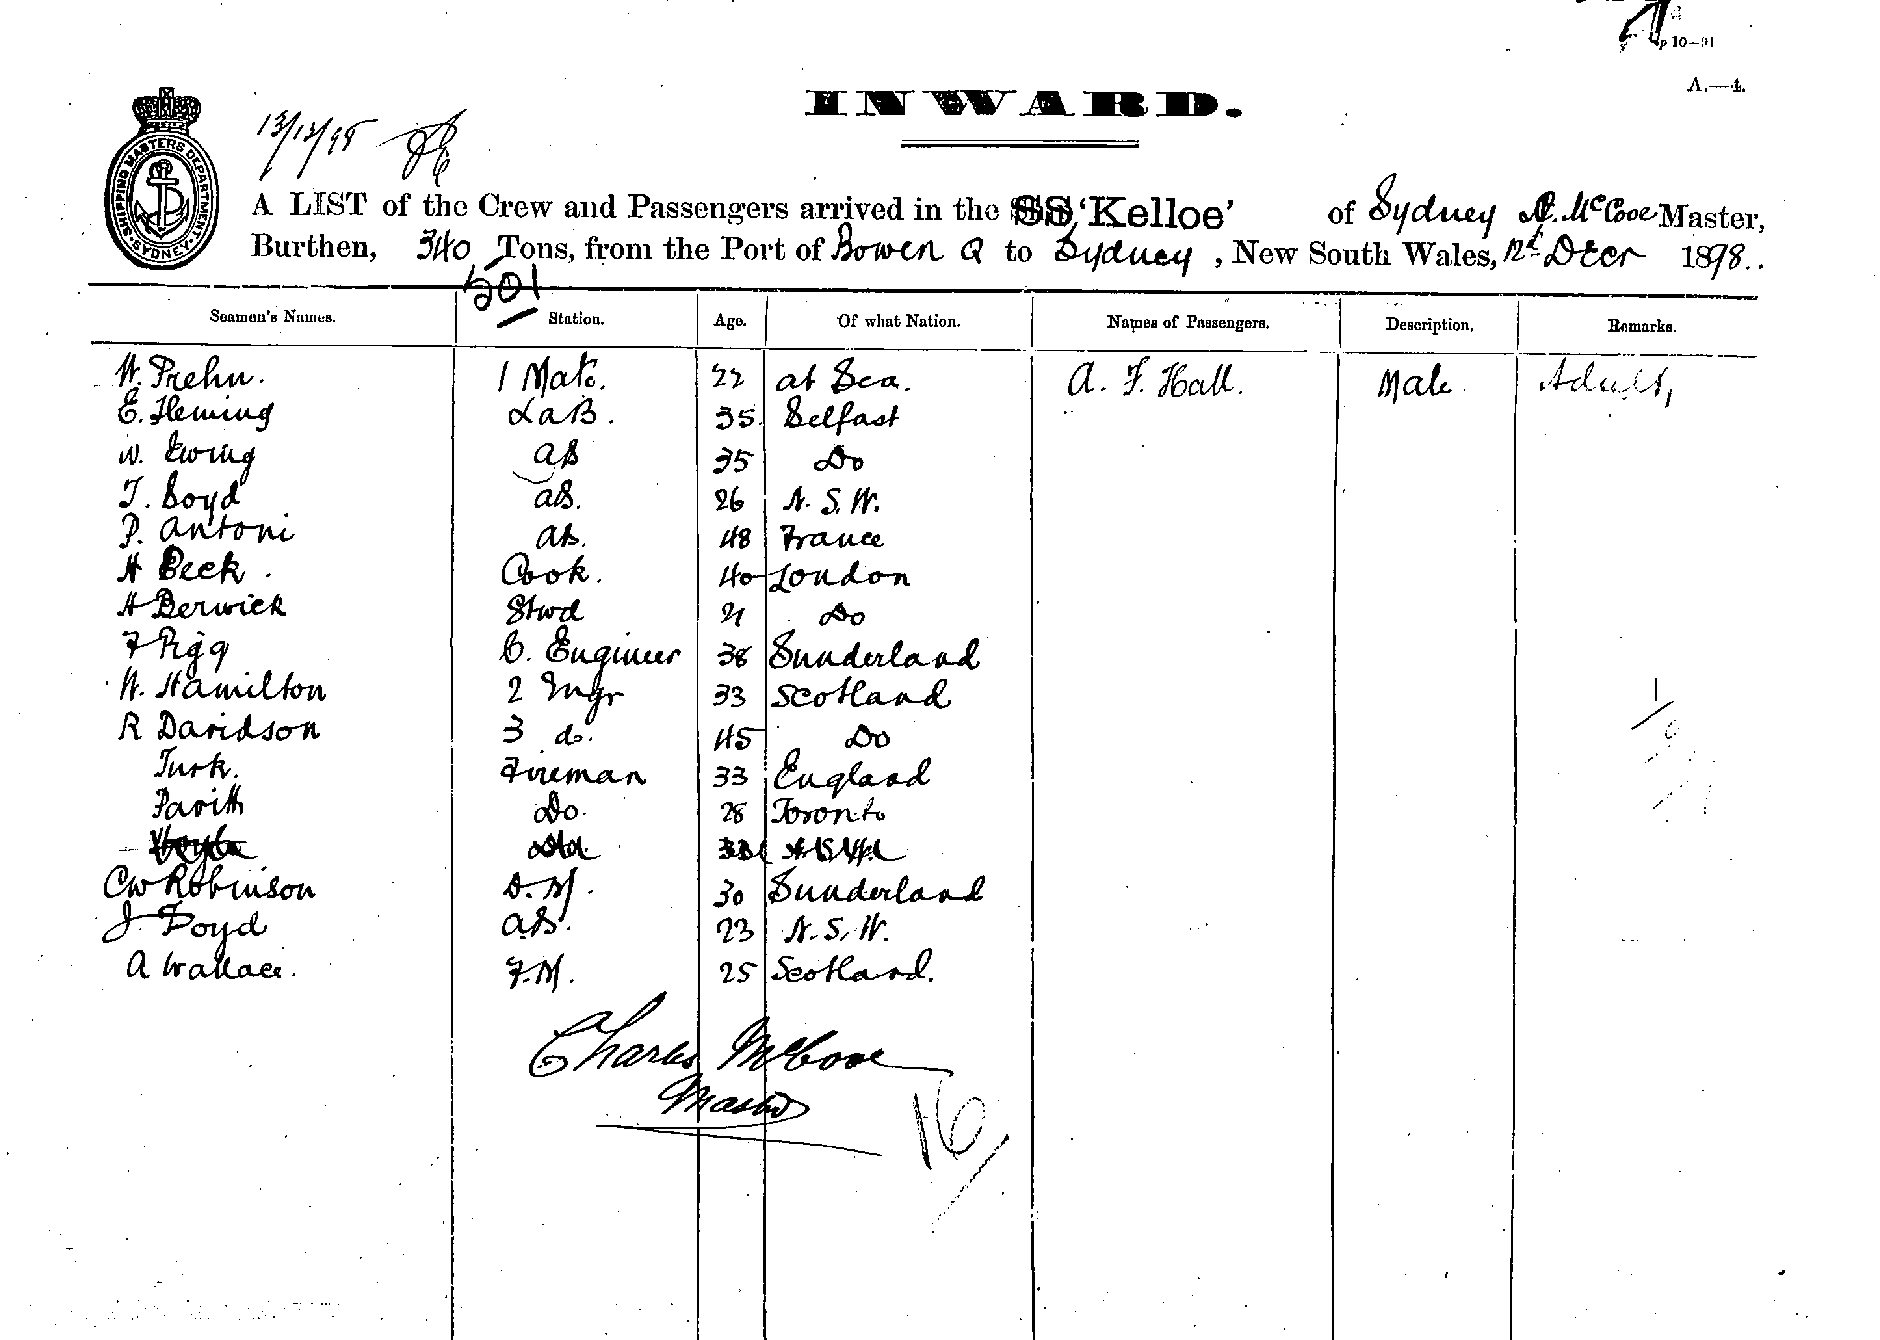 10—91
A.—4.
INWARD.
SHIPPING MASTERS DEPARTMENT. SYDNEY
13/12/98
A LIST of the Crew and Passengers arrived in the SS, 'Kelloe' of Sydney McCooe Master,
Burthen, 340 Tons, from the Port of Bowen Q to Sydney, New South Wales, 12th Decr 1898.
501
Seamen's Names. Station. Age. Of what Nation. Names of Passengers. Description. Remarks.
W. Prehn. 1 Mate. 22 at Sea. A. F. Hall. Male. Adult,
E. Fleming 35 Belfast
W. Ewing AB 35 Do
T. Boyd AB. 26 N. S. W.
P. Antoni AB. 48 France
H Peck. Cook. 40 London
H Berwick Stwd 21 Do
F Pigg C. Engineer 38 Sunderland
W. Hamilton 2 Engr 33 Scotland
R Davidson 3 do. 45 Do
Turk. Fireman 33 England
Do. 28 Toronto
CW Robinson D.M. 30 Sunderland
J. Boyd AB. 23 N. S. W.
A Wallace. F.M. 25 Scotland.
Charles McCooe
Master
16